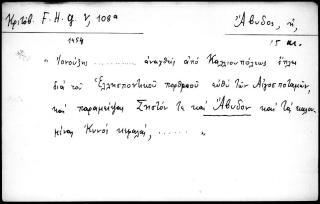 Κριτόβ. F.H.G. V, 108ª
Ἄβυδος, ἡ,
1454
15 αι.
" Ἰονούζης ........ ἀναχθεὶς ἀπὸ Καλλιουπόλεως ἔπλει
διὰ τοῦ Ἑλλησποντικοῦ πορθμοῦ εὐθὺ τῶν Αἰγὸς ποταμῶν,
καὶ παραμείψας Σηστόν τε καὶ Ἄβυδον καὶ τὰ καλού-
μενα Κυνὸς κεφαλάς, ........ "